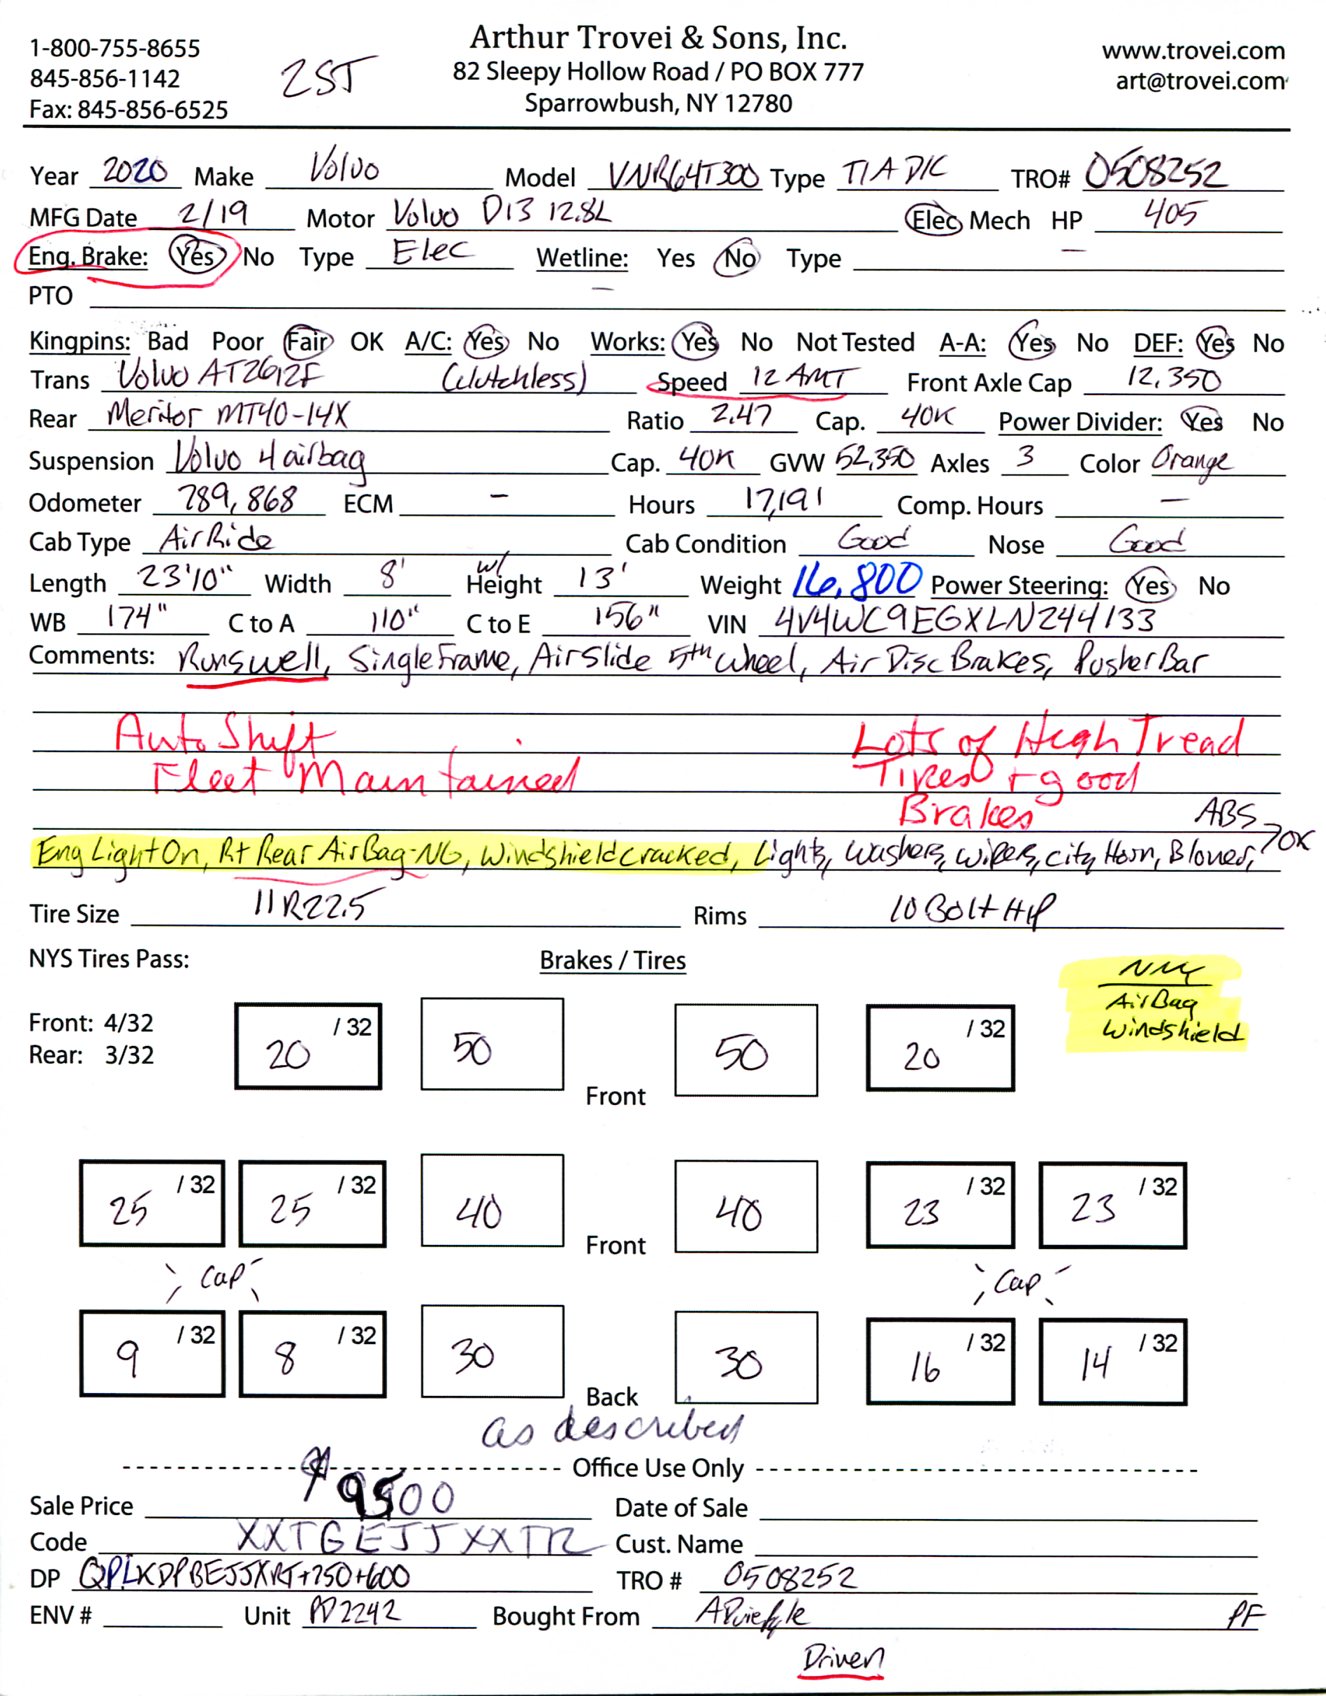 Arthur Trovei & Sons, Inc.
1-800-755-8655 82 Sleepy Hollow Road / PO BOX 777 www.trovei.com
845-856-1142 2ST Sparrowbush, NY 12780 art@trovei.com
Fax: 845-856-6525
Year 2020 Make Volvo Model VNR64T300 Type T/A D/C TRO# 0508252
MFG Date 2/19 Motor Volvo D13 12.8L Elec Mech HP 405
Eng. Brake: Yes No Type Elec Wetline: Yes No Type —
PTO —
Kingpins: Bad Poor Fair OK A/C: Yes No Works: Yes No Not Tested A-A: Yes No DEF: Yes No
Trans Volvo AT2612F (Clutchless) Speed 12 AMT Front Axle Cap 12,350
Rear Meritor MT40-14X Ratio 2.47 Cap. 40K Power Divider: Yes No
Suspension Volvo 4 airbag Cap. 40K GVW 52,350 Axles 3 Color Orange
Odometer 789,868 ECM — Hours 17,191 Comp. Hours —
Cab Type Air Ride Cab Condition Good Nose Good
Length 23'10" Width 8' w/ Height 13' Weight 16,800 Power Steering: Yes No
WB 174" C to A 110" C to E 156" VIN 4V4WC9EGXLN244133
Comments: Runs well, Single Frame, Air Slide 5th Wheel, Air Disc Brakes, Pusher Bar
Auto Shift Lots of High Tread
Fleet Maintained Tires + good
Brakes ABS
Eng Light On, Rt Rear Air Bag-NG, Windshield cracked, Lights, Washers, Wipers, City Horn, Blower, >OK
Tire Size 11R22.5 Rims 10 Bolt H/P
NYS Tires Pass: Brakes / Tires
AirBag
Windshield
Front: 4/32
Rear: 3/32
20 /32 50 Front 50 20 /32
25 /32 25 /32 40 Front 40 23 /32 23 /32
Cap Cap
9 /32 8 /32 30 Back 30 16 /32 14 /32
as described
Office Use Only
Sale Price $9500 Date of Sale
Code XXTGEJJXXTR Cust. Name
DP QPLKDPBEJJXRT+750+600 TRO # 0508252
ENV # Unit PP2242 Bought From PF
Driven